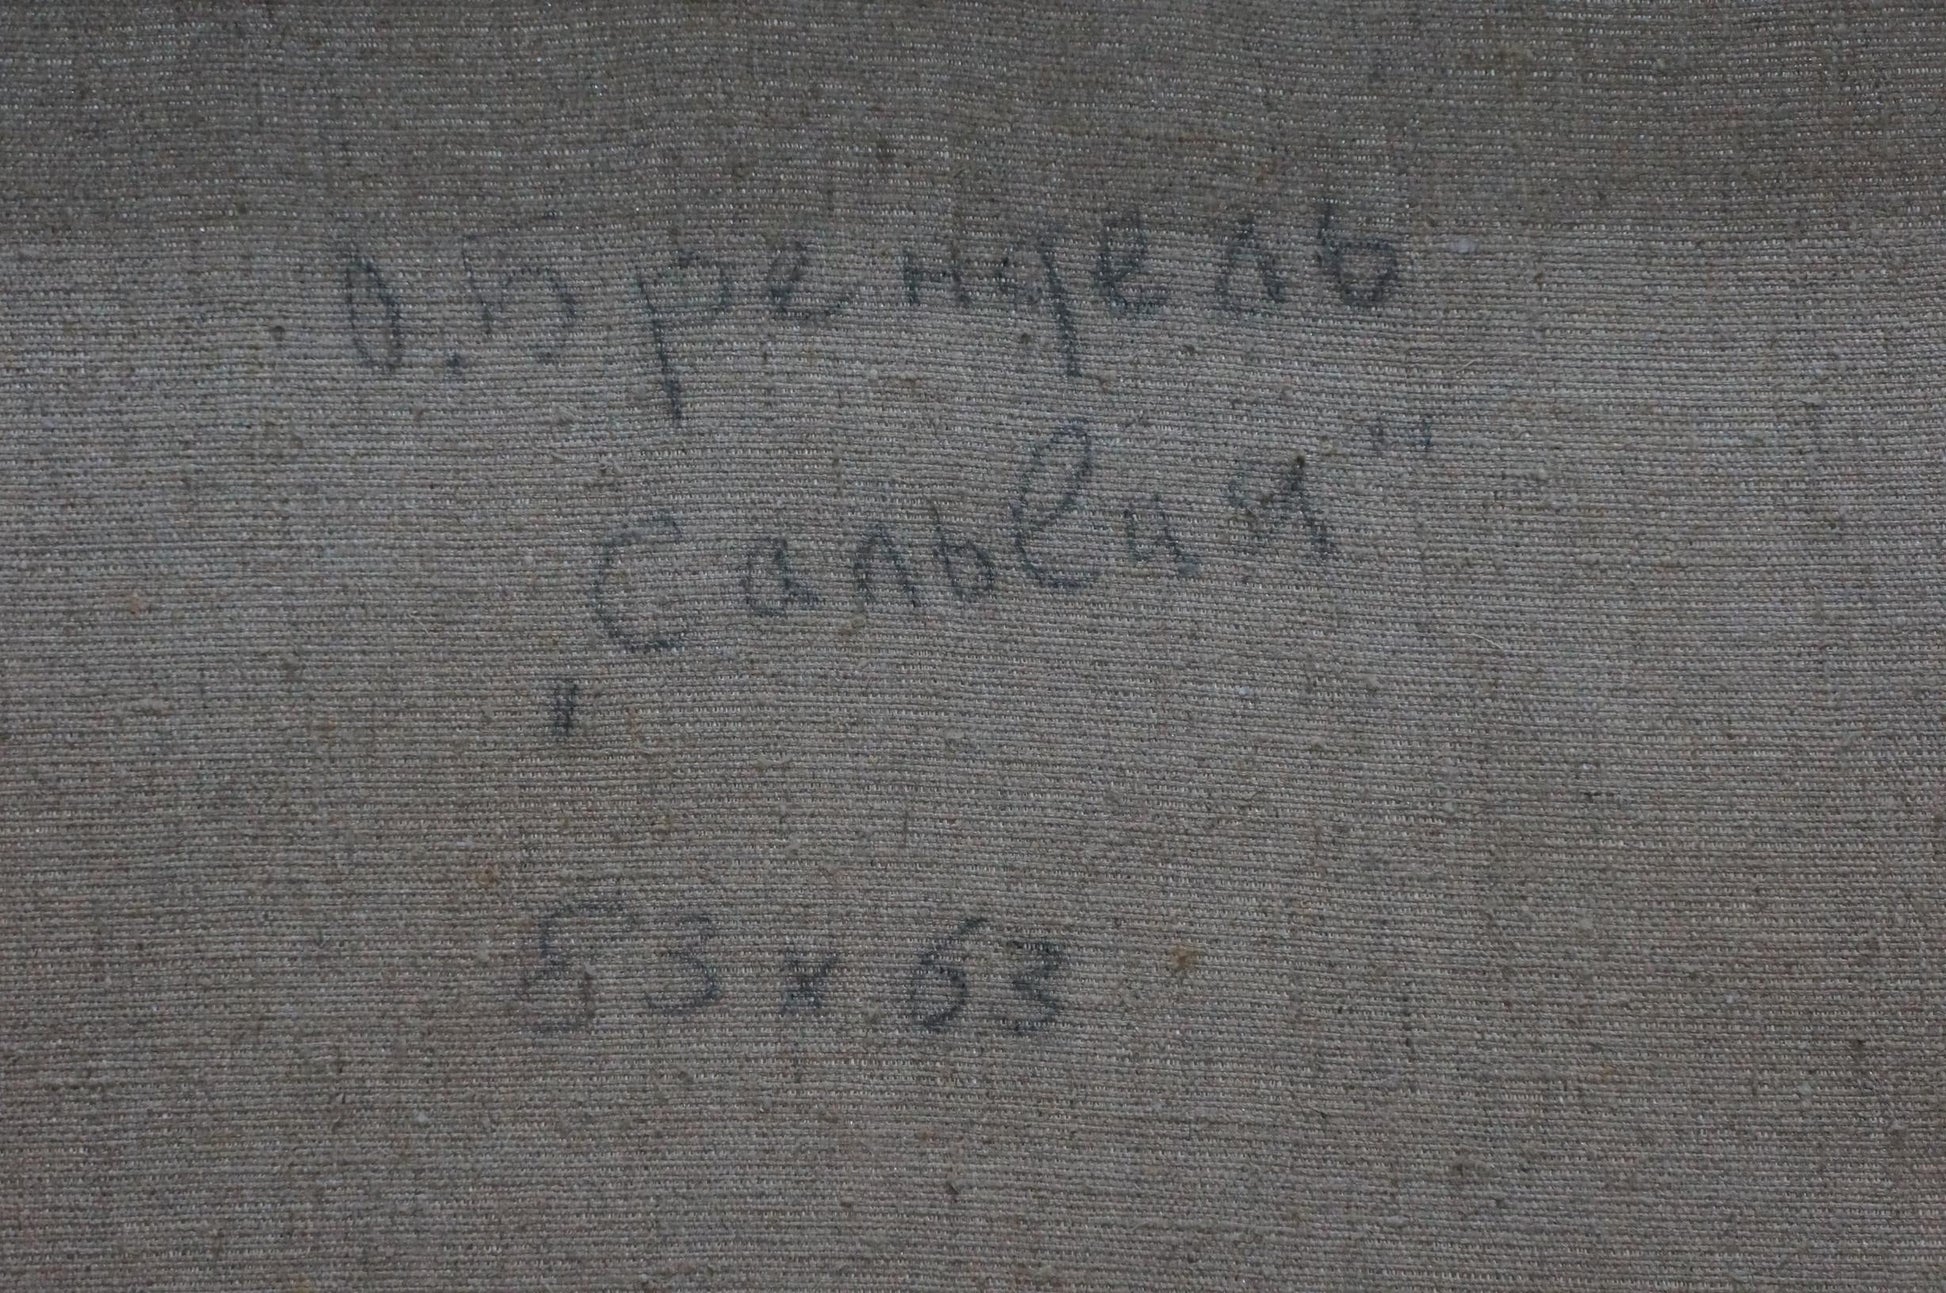 О. Брендель
„Сальвия“
53 x 63